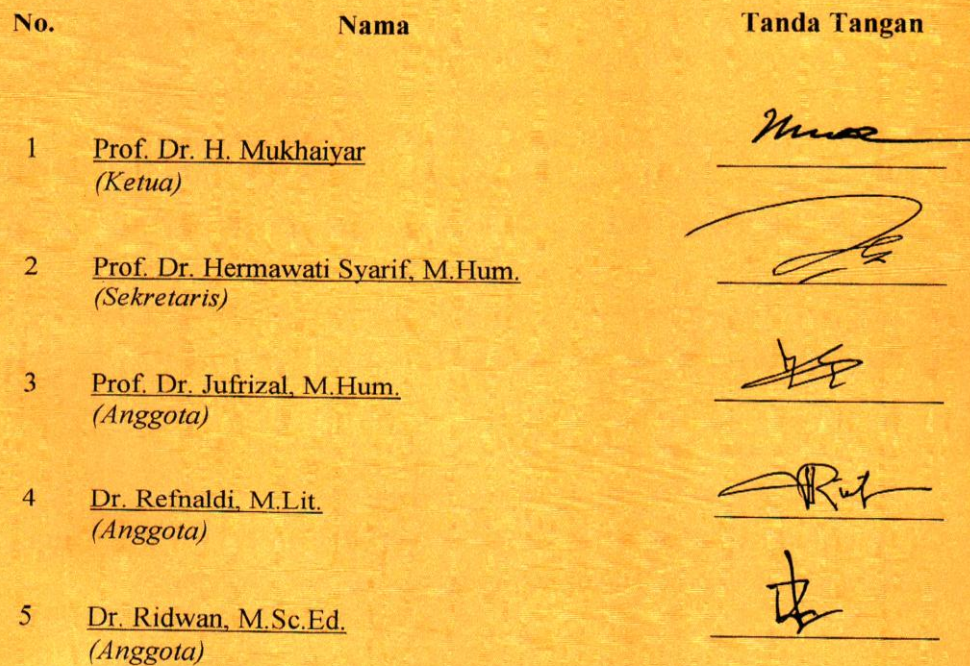 No. Nama Tanda Tangan
1 Prof. Dr. H. Mukhaiyar
(Ketua)
2 Prof. Dr. Hermawati Syarif, M.Hum.
(Sekretaris)
3 Prof. Dr. Jufrizal, M.Hum.
(Anggota)
4 Dr. Refnaldi, M.Lit.
(Anggota)
5 Dr. Ridwan, M.Sc.Ed.
(Anggota)